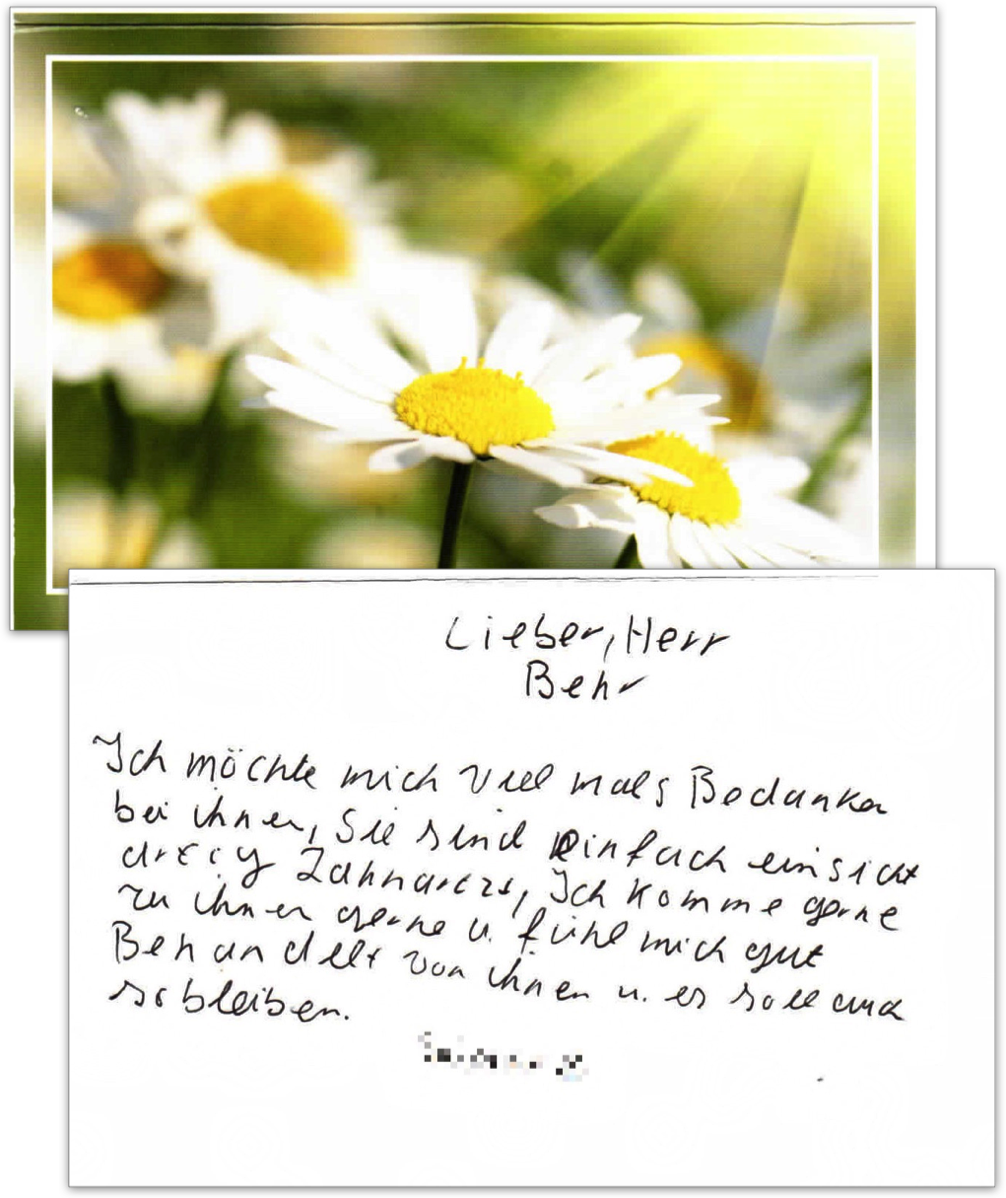 Lieber, Herr
Behr
Ich möchte mich viel mals Bedanken
bei ihnen, Sie sind einfach ein
Zahnarzt, Ich komme gerne
zu ihnen gerne u. fühl mich gut
Behandelt von ihnen u. es soll auch
so bleiben.